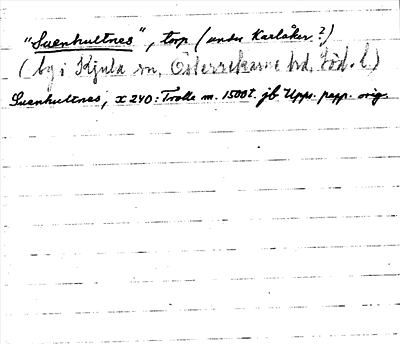 "Suenhultnes", torp (under Karlåker?)
(by i Kjula sn, Österrekarne hd, Söd. l.)
Suenhultnes, x 240: Trolle m. 1500 t. jb Upps. papp. orig.